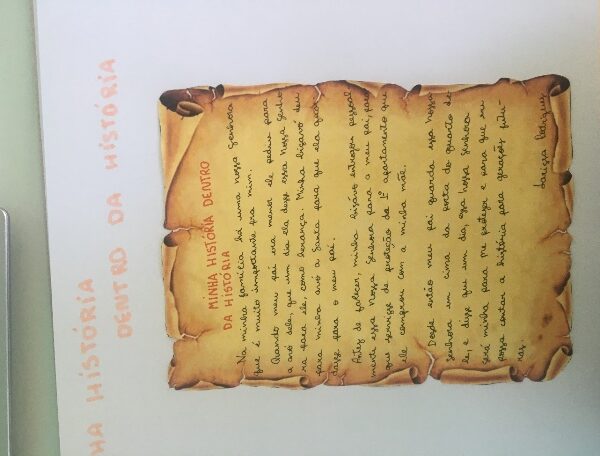 HA HISTÓRIA
DENTRO DA HISTÓRIA
MINHA HISTÓRIA DENTRO
DA HISTÓRIA
Na minha família há uma nossa senhora
que é muito importante pra mim.
Quando meu pai era menor ele pediu para
a avó dele, que um dia ela desse essa Nossa Senho
ra para ele, como herança. Minha bisavó deu
para minha avó a Santa para que ela guar
dasse para o meu pai.
Antes de falecer, minha bisávo entregou pessoal
mente essa Nossa Senhora para o meu pai, para
que servisse de proteção do 1º apartamento que
ele comprou com a minha mãe.
Desde então meu pai guarda essa nossa
senhora em cima da porta do quarto de
le, e disse que um dia, essa nossa senhora
será minha para me proteger e para que eu
possa contar a história para gerações futu-
ras.
Larissa